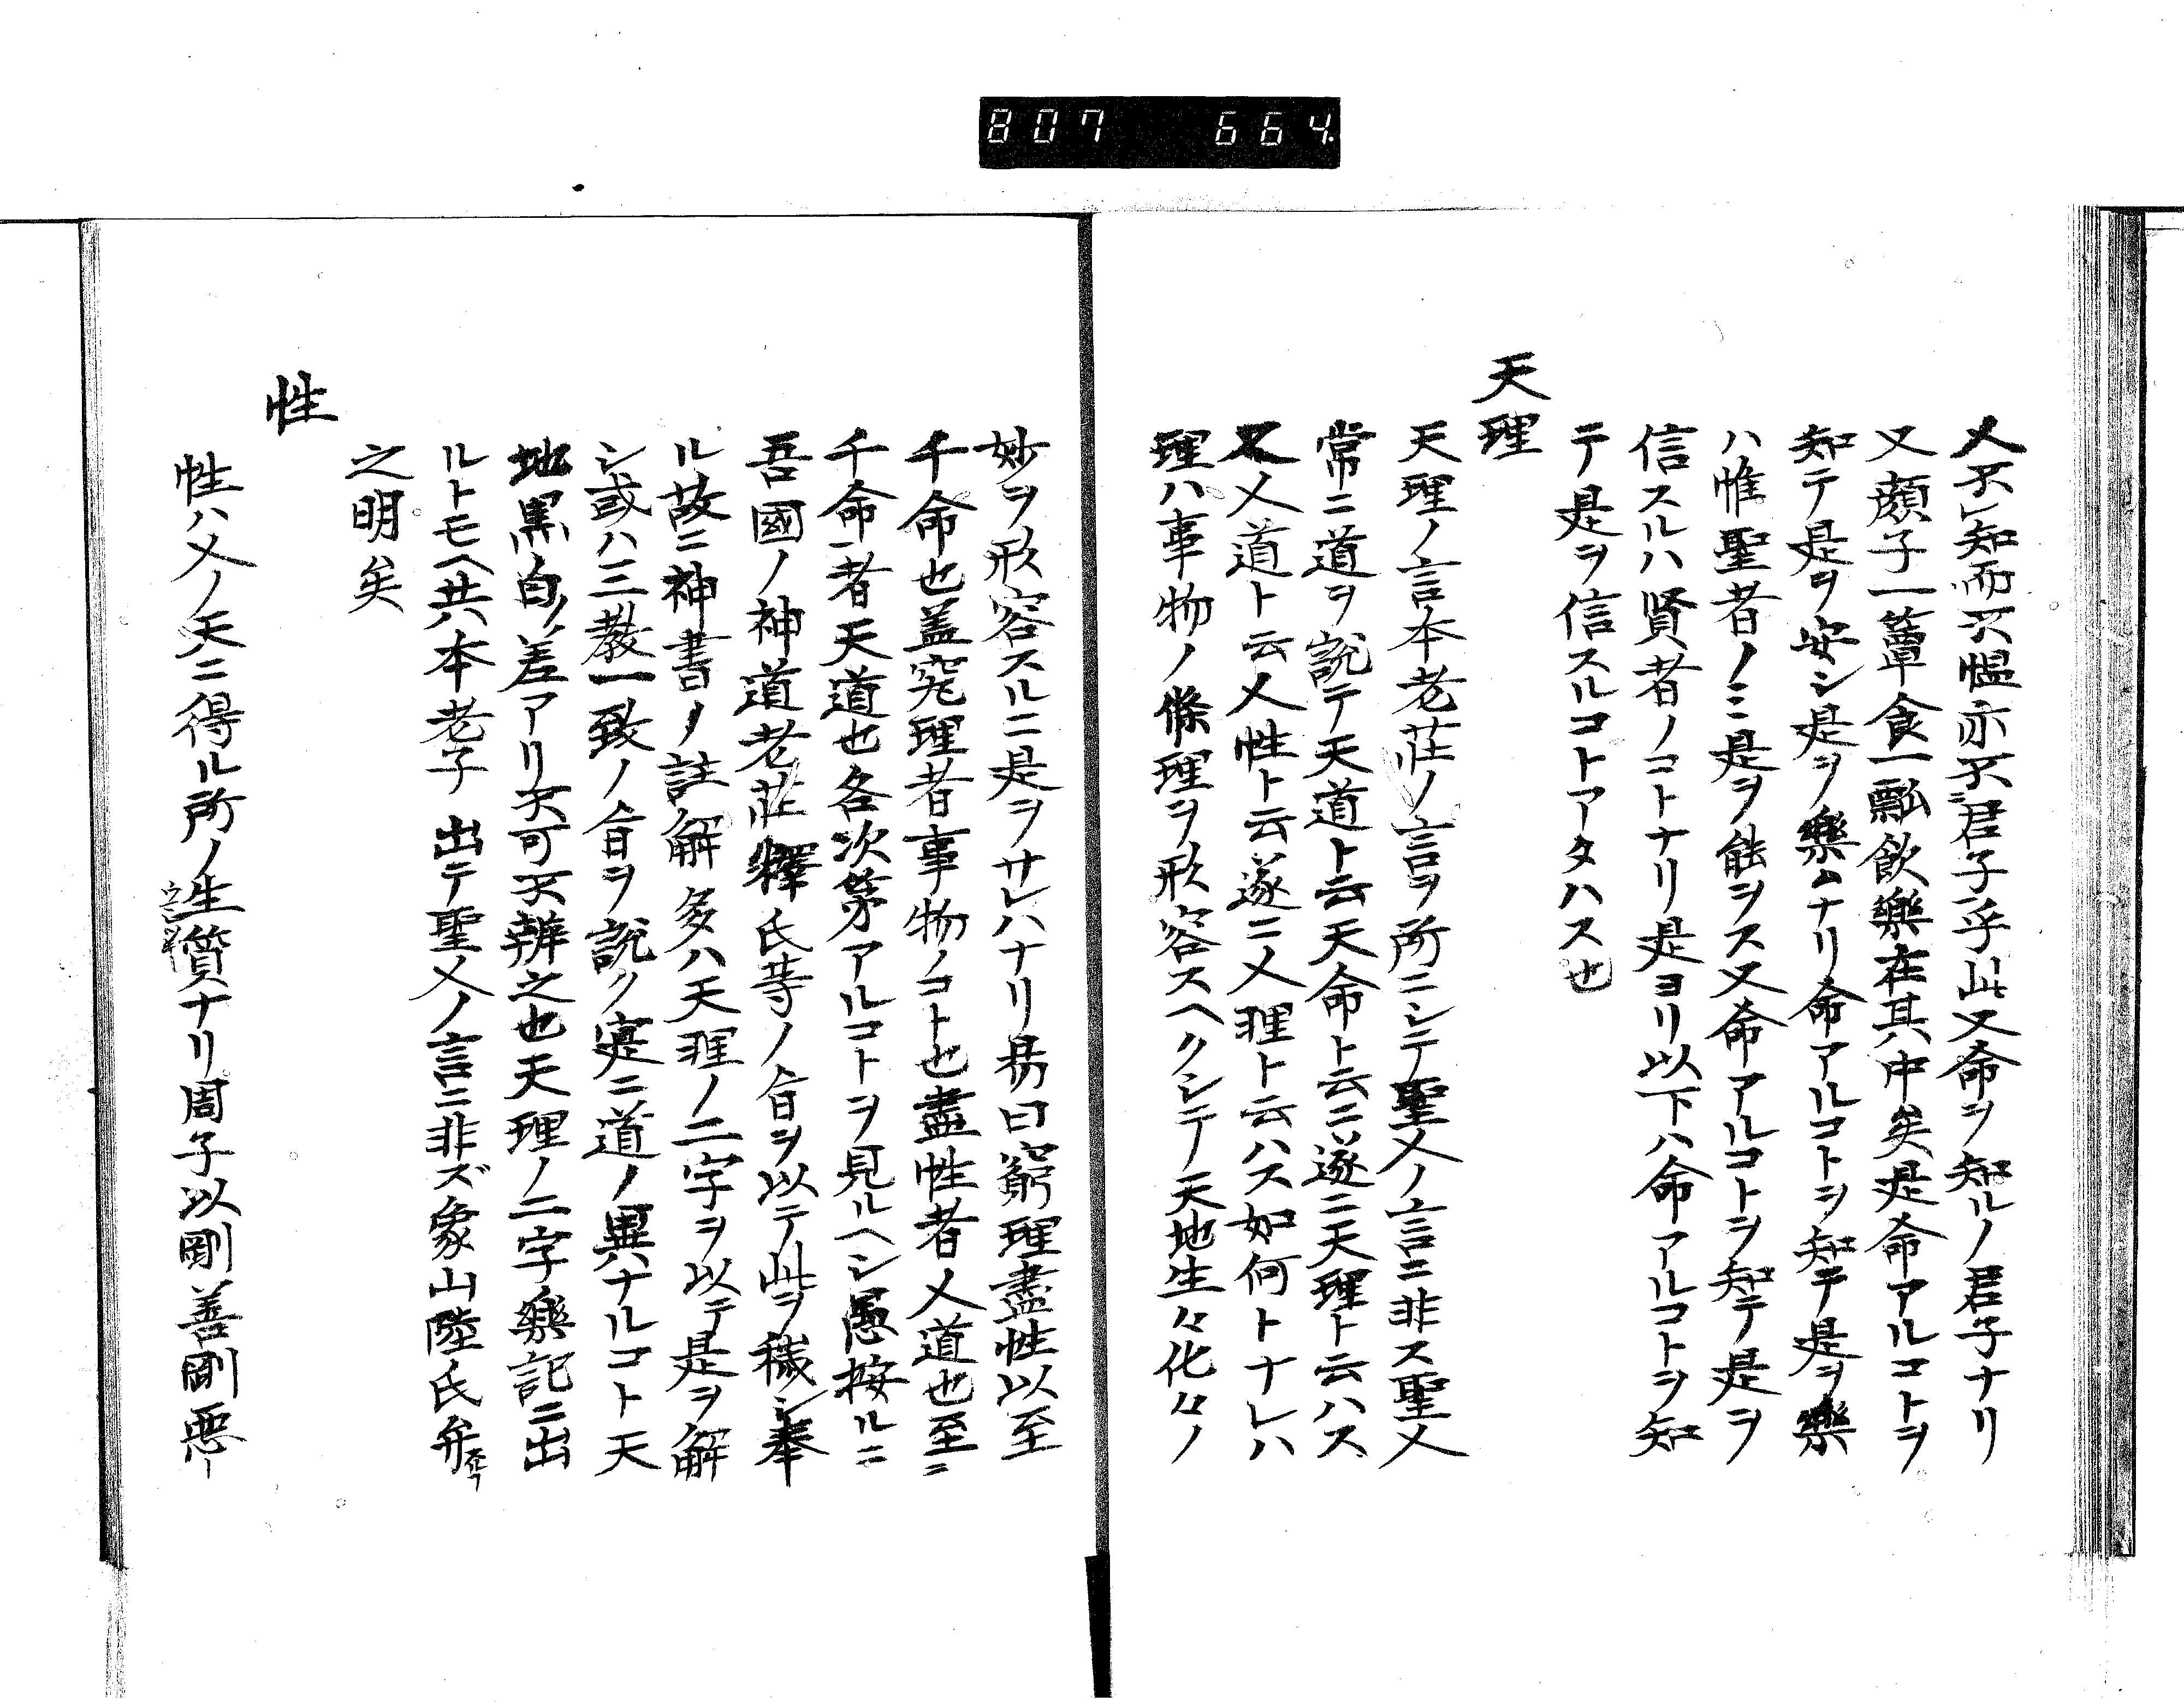 807 664
人不レ知而不慍亦不君子乎此又命ヲ知ルノ君子ナリ
又顔子一簞食一瓢飲樂在其中矣是命アルコトヲ
知テ是ヲ安シ是ヲ樂ムナリ命アルコトヲ知テ是ヲ樂
ハ惟聖者ノミ是ヲ能ヲス又命アルコトヲ知テ是ヲ
信スルハ賢者ノコトナリ是ヨリ以下ハ命アルコトヲ知
テ是ヲ信スルコトアタハス也
天理
天理ノ言本老荘ノ言ヲ所ニシテ聖人ノ言ニ非ス聖人
常ニ道ヲ説テ天道ト云天命ト云ニ遂ニ天理ト云ハス
又人道ト云人性ト云遂ニ人理ト云ハス如何トナレハ
理ハ事物ノ條理ヲ形容スヘクシテ天地生々化々ノ
妙ヲ形容スルニ是ヲサレハナリ易曰窮理盡性以至
千命也盖究理者事物ノコト也盡性者人道也至ニ
千命者天道也各次第アルコトヲ見ルヘシ愚按ルニ
吾國ノ神道老荘釋氏等ノ㫖ヲ以テ此ヲ穢シ奉
ル故ニ神書ノ註解多ハ天理ノ二字ヲ以テ是ヲ解
シ或ハ三教一致ノ㫖ヲ説ク寔ニ道ノ異ナルコト天
地黒白ノ差アリ不可不辨之也天理ノ二字樂記ニ出
ルトモヘ共本老子出テ聖人ノ言ニ非ズ象山陸氏弁
之明矣
性
性ハ人ノ天ニ得ル所ノ生質ナリ周子以剛善剛悪